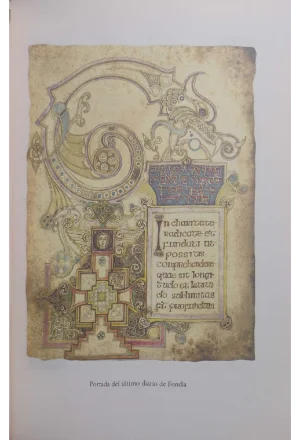 In charitate
radicate et
fundati ut
possitis
comprehendere
quae sit longi
tudo et latitu
do sublimitas
et profundum
Portada del último diario de